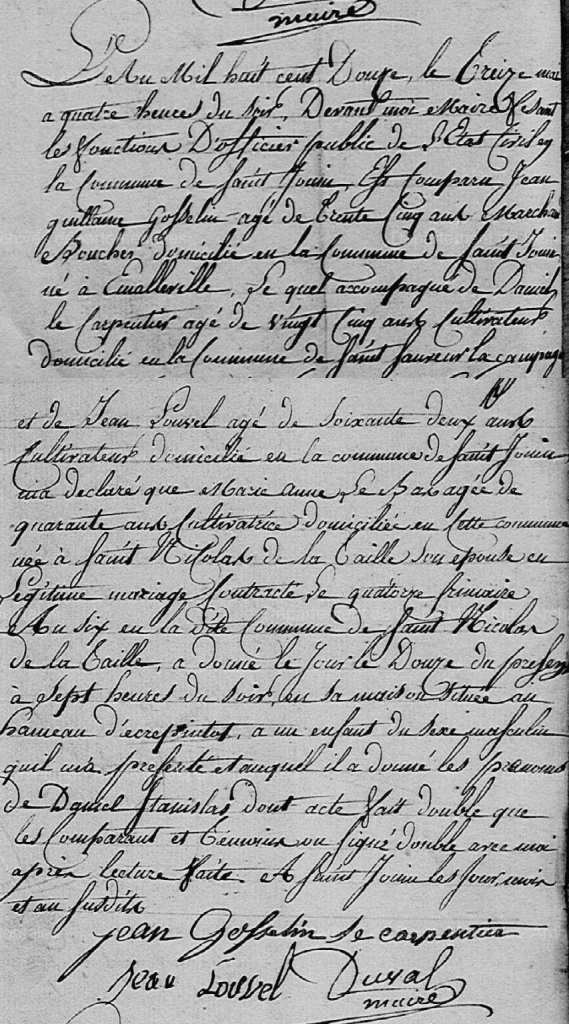 maire
L'an Mil huit cent Douze, le treize mai
a quatre heures du soir, Devant moi Maire fesant
les fonctions D'officier public de L'Etat Civil en
la Commune de Saint Jouin, Est Comparu Jean
guillaume Gosselin agé de trente Cinq ans Marchand
Boucher domicilié en la Commune de Saint Jouin
né à Emalleville, Le quel accompagné de Daniel
le Carpentier agé de vingt Cinq ans Cultivateur
domicilié en la Commune de Saint Sauveur la campagne
et de Jean Louvel agé de soixante deux ans
Cultivateur domicilié en la commune de Saint Jouin
ma declaré que Marie anne Le Bas agée de
quarante ans Cultivatrice domiciliée en Cette commune
née à Saint Nicolas de la taille son epouse en
Legitime mariage Contracté Le quatorze frimaire
An six en la dite Commune de Saint Nicolas
de la taille, a donné le Jour le Douze du present
à sept heures du soir, en sa maison située au
hameau d'ecrepintot, a un enfant du sexe masculin
quil ma presenté et auquel il a donné les prenoms
de Daniel Stanislas dont acte fait double que
les Comparant et temoins on signé double avec moi
après lecture faite. A Saint Jouin les Jour, mois
et an susdits
jean Gosselin le carpentier
Jean Louvel Duval
maire